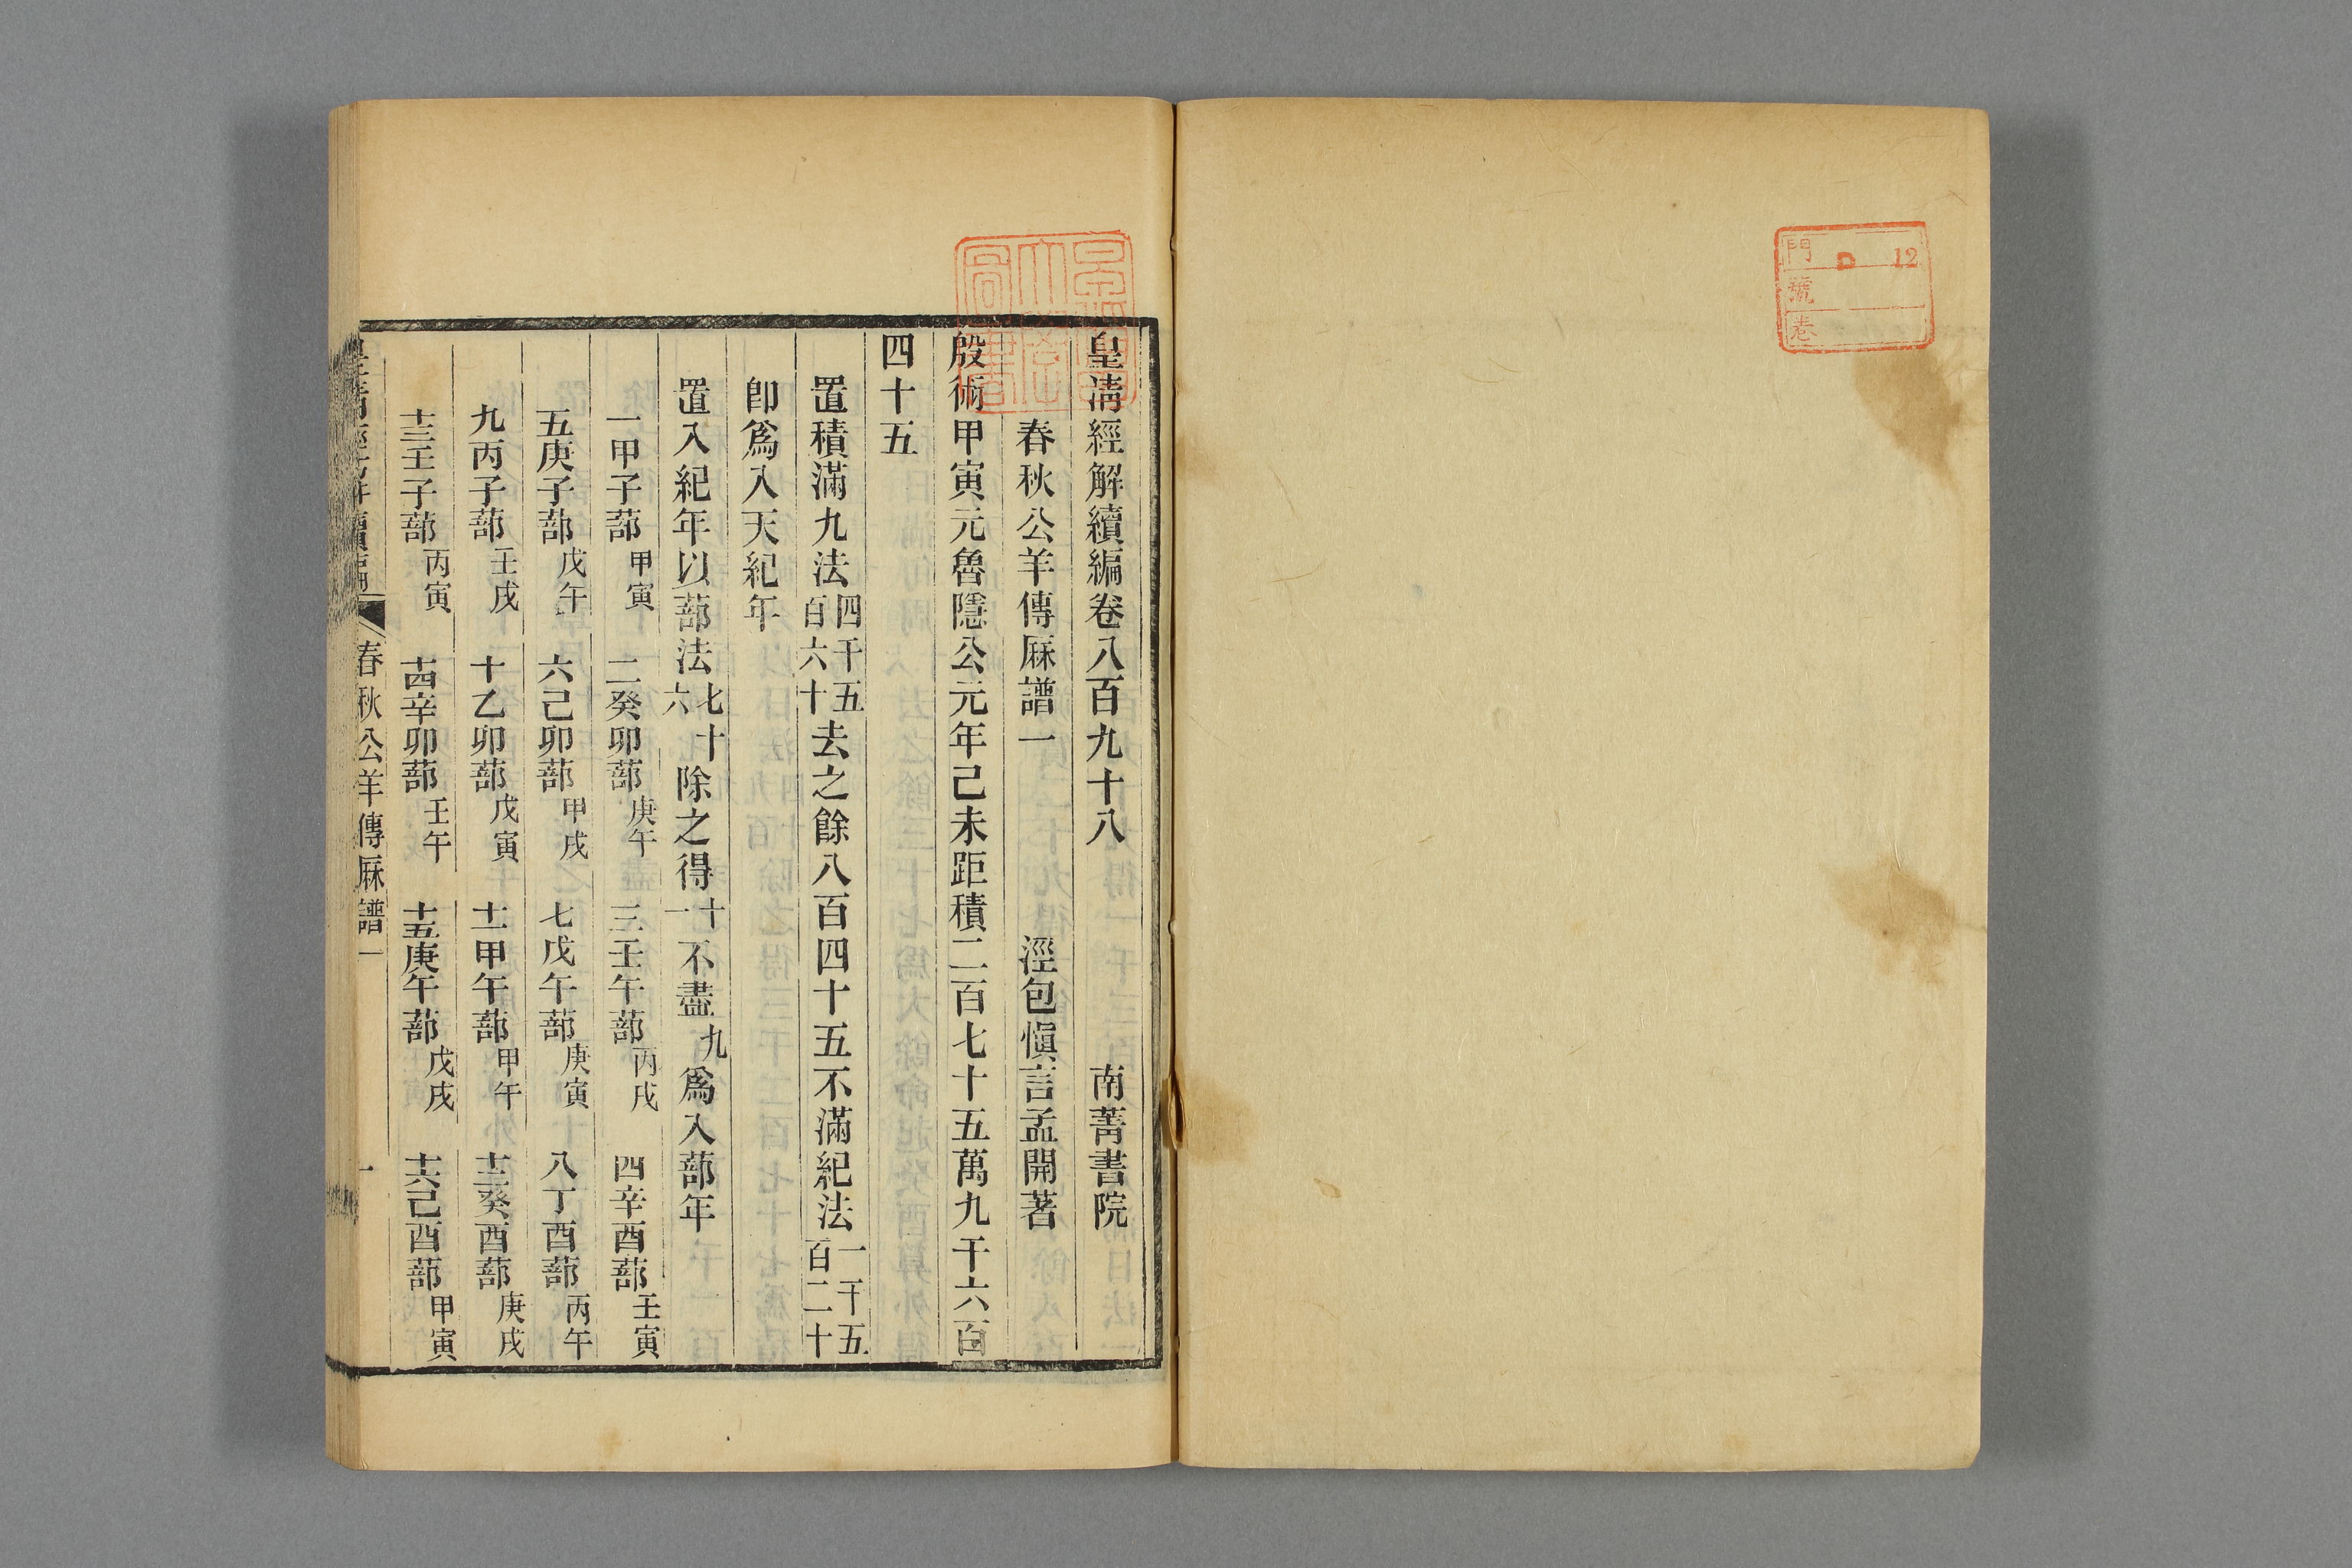 門 D 12
號
卷
皇清經解續編卷八百九十八 南菁書院
春秋公羊傳厤譜一 涇包愼言孟開著
殷術甲寅元魯隱公元年己未距積二百七十五萬九千六百
四十五
置積滿九法四千五百六十去之餘八百四十五不滿紀法一千五百二十
卽爲入天紀年
置入紀年以蔀法七十六除之得十一不盡九爲入蔀年
一甲子蔀甲寅 二癸卯蔀庚午 三壬午蔀丙戌 四辛酉蔀壬寅
五庚子蔀戊午 六己卯蔀甲戌 七戊午蔀庚寅 八丁酉蔀丙午
九丙子蔀壬戌 十乙卯蔀戊寅 十一甲午蔀甲午 十二癸酉蔀庚戌
十三壬子蔀丙寅 十四辛卯蔀壬午 十五庚午蔀戊戌 十六己酉蔀甲寅
皇清經解續編 春秋公羊傳厤譜一 一